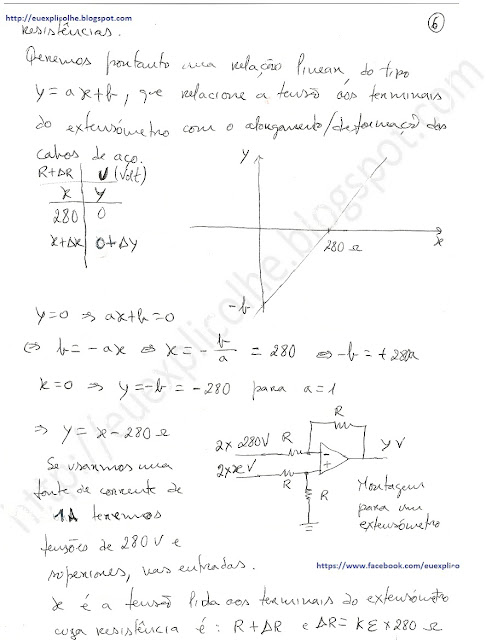 http://euexplicolhe.blogspot.com
6
resistências.
Queremos portanto uma relação linear, do tipo
y = ax+b, que relacione a tensão aos terminais
do extensómetro com o alongamento/deformação dos
cabos de aço.
R+ΔR | U (Volt)
x | y
280 | 0
x+Δx | 0+Δy
y
280 Ω
x
-b
y=0 ⇒ ax+b=0
⇔ b = -ax ⇔ x = -b/a = 280 ⇔ -b = +280a
x=0 ⇒ y=-b = -280 para a=1
⇒ y = x - 280 Ω
Se usarmos uma
fonte de corrente de
1A teremos
tensões de 280 V e
superiores, nas entradas.
2x 280V
R
R
2x xV
R
R
- +
y V
Montagem
para um
extensómetro
https://www.facebook.com/euexpliro
x é a tensão lida aos terminais do extensómetro
cuja resistência é: R+ΔR e ΔR = KE x 280 Ω
http://euexplicolhe.blogspot.com